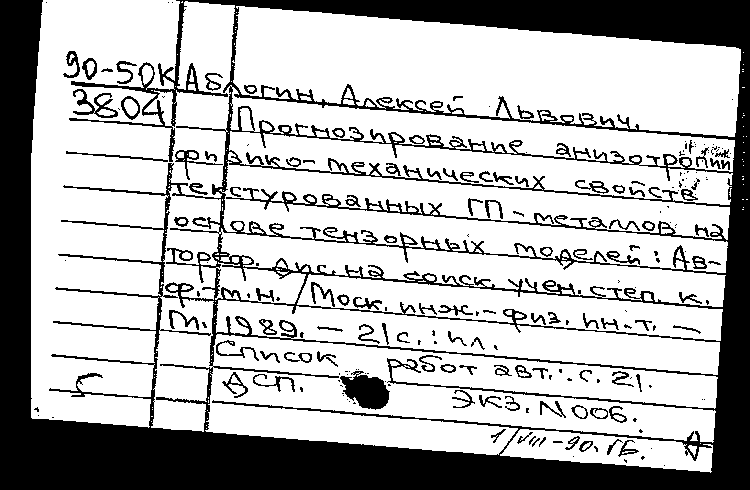 90-50К Аблогин, Алексей Львович.
3804 Прогнозирование анизотропии
физико-механических свойств
текстурованных ГП-металлов на
основе тензорных моделей: Ав-
тореф. дис. на соиск. учен. степ. к.
ф.-м.н. / Моск. инж.-физ. ин-т. —
М. 1989. — 21с.: ил.
Список работ авт.: с. 21.
ДСП. Экз. N 006.
5
1/VIII-90.